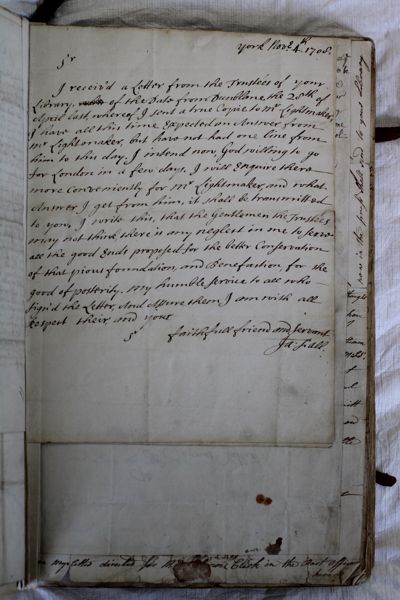 York Nov: 4th 1708.
Sr
I receiv'd a Letter from the Trustees of your
Library. of the Date from Dunblane the 28th of
Aprile last, whereof I sent a true Copie to Mr Lightmaker,
I have all this time Expected an Answer from
Mr Lightmaker, but have not had one line from
him to this day. I intend now God willing to go
for London in a few days, I will Enquire there
more Conveniently for Mr Lightmaker, and what
Answer I get from him, it shall be transmitted
to you, I write this, that the Gentlemen the Trustees
may not think there is any neglect in me to serve
all the good Ends proposed for the better Conservation
of that pious foundation, and Benefaction for the
good of posterity. my humble service to all who
sign'd the Letter, And Assure them I am with all
Respect their and your
Sr faithfull friend and servant
Ja: Fall.
my letters directed for Mr Clerk in the Post office